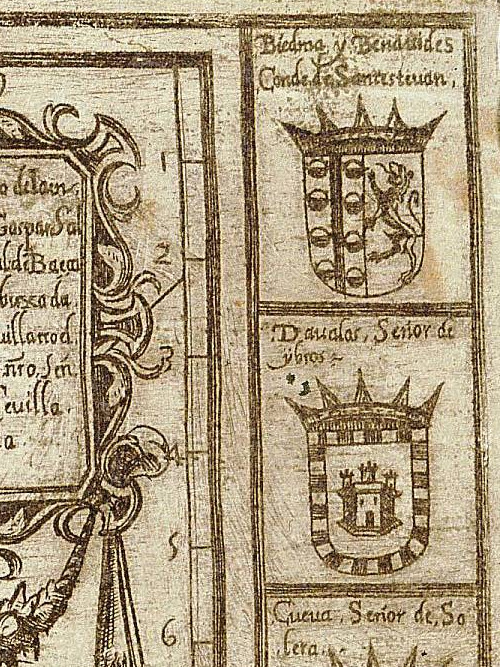 o de Iaen,
Gaspar Sal
al de Baeça
villarrod.
nr̃o, Señ.
Sevilla.
a.
1
2
3
4
5
6
Biedma y Benauides
Conde de Santisteuan,
Daualos, Señor de
ybros
Cueua, Señor de, So
lera,